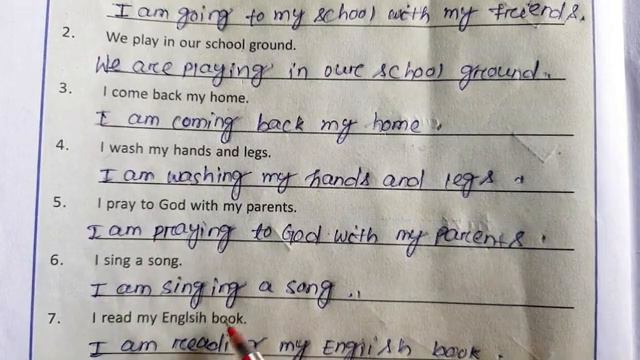 I am going to my school with my friends.
2. We play in our school ground.
We are playing in our school ground.
3. I come back my home.
I am coming back my home.
4. I wash my hands and legs.
I am washing my hands and legs.
5. I pray to God with my parents.
I am praying to God with my parents.
6. I sing a song.
I am singing a song..
7. I read my Englsih book.
I am my English book.